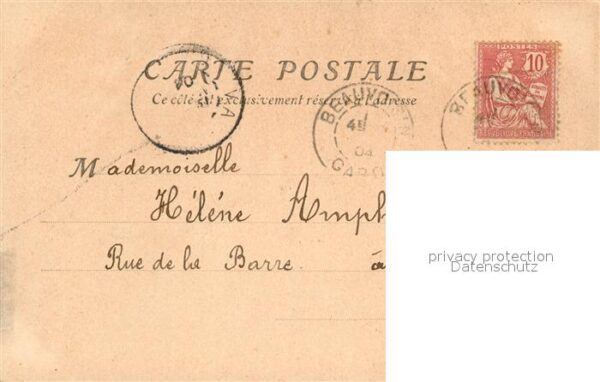 CARTE POSTALE
Ce côté est exclusivement réservé à l'adresse
POSTES
10
REPUBLIQUE FRANÇAISE
04
BEAUVO
04
BEAUVO
Mademoiselle
Hélène Amph
Rue de la Barre à
privacy protection
Datenschutz